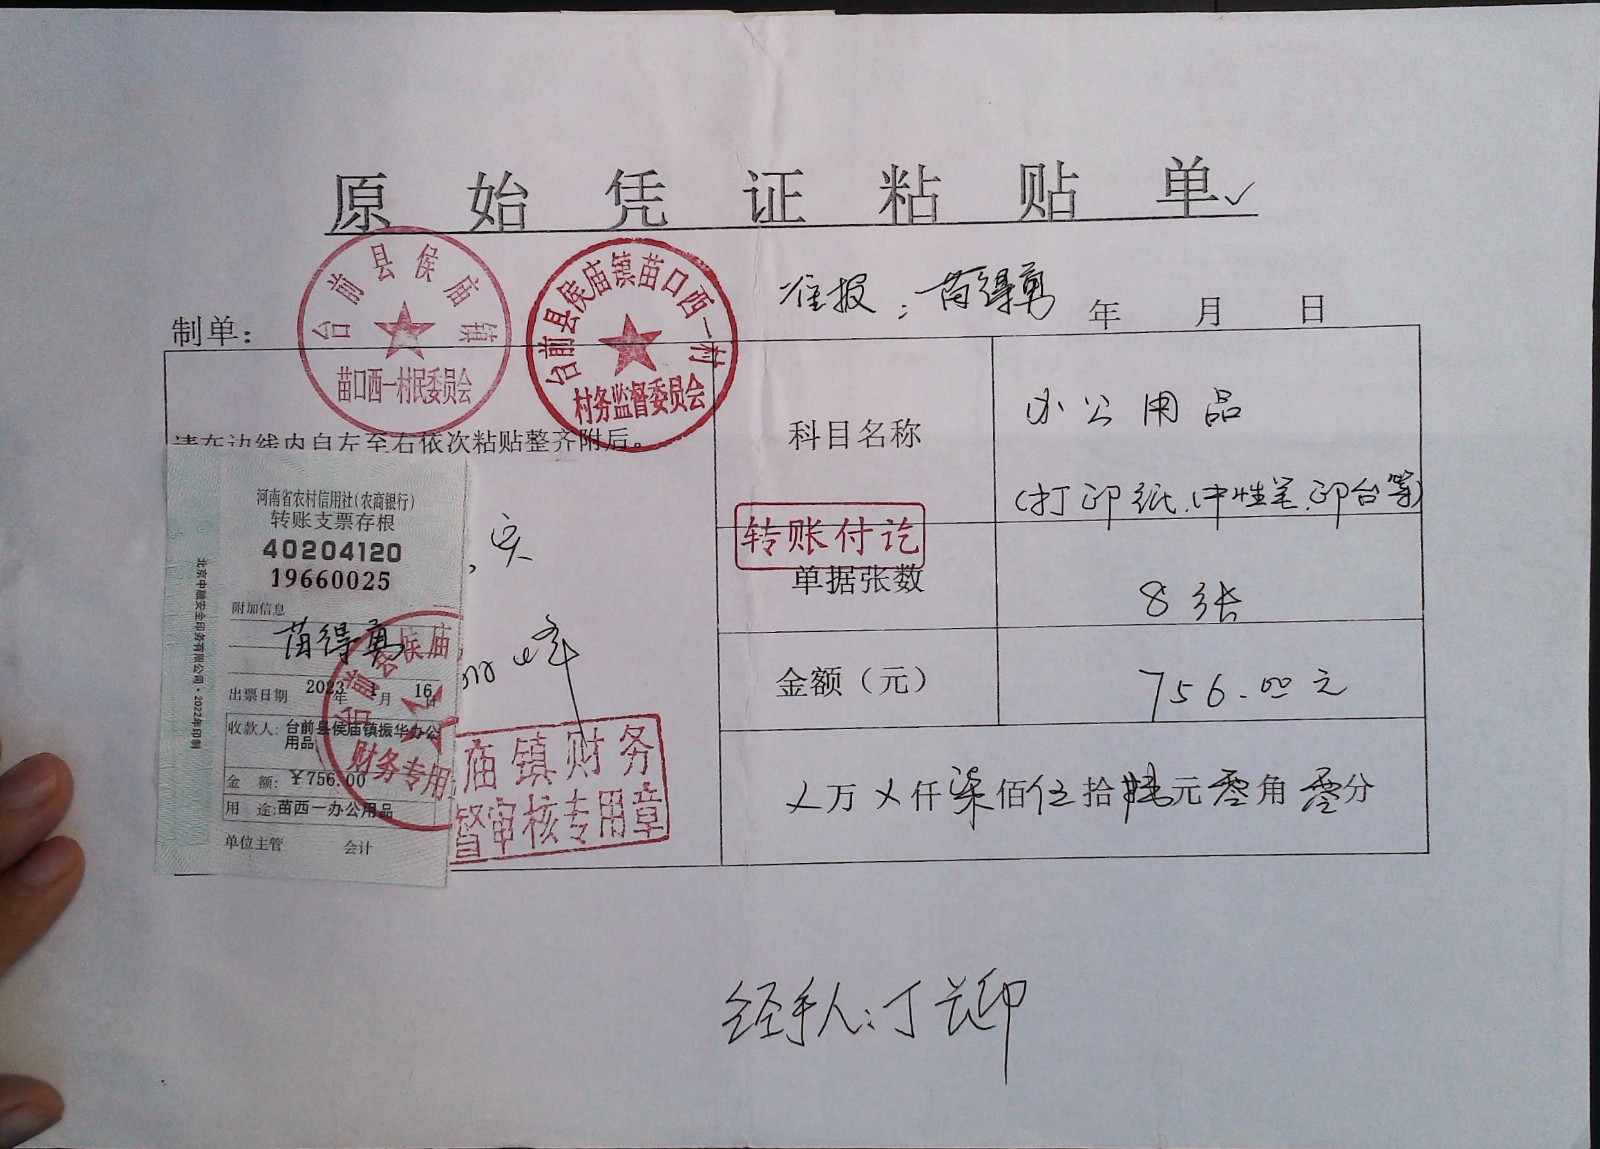 原始凭证粘贴单
台前县侯庙镇
苗口西一村民委员会
台前县侯庙镇苗口西一村
村务监督委员会
准报：苗得勇
制单：
年 月 日
请在边线内自左至右依次粘贴整齐附后。
科目名称
办公用品
(打印纸、中性笔、印台等)
转账付讫
单据张数
8张
金额（元）
756.00元
乂万乂仟柒佰伍拾陆元零角零分
河南省农村信用社(农商银行)
转账支票存根
40204120
19660025
附加信息
苗得勇
出票日期 2023年1月16日
收款人: 台前县侯庙镇振华办公
用品
金 额: ￥756.00
用 途: 苗西一办公用品
单位主管 会计
北京中融安全印务有限公司·2022年印制
侯庙
财务专用
实
峰
庙镇财务
督审核专用章
经手人：丁